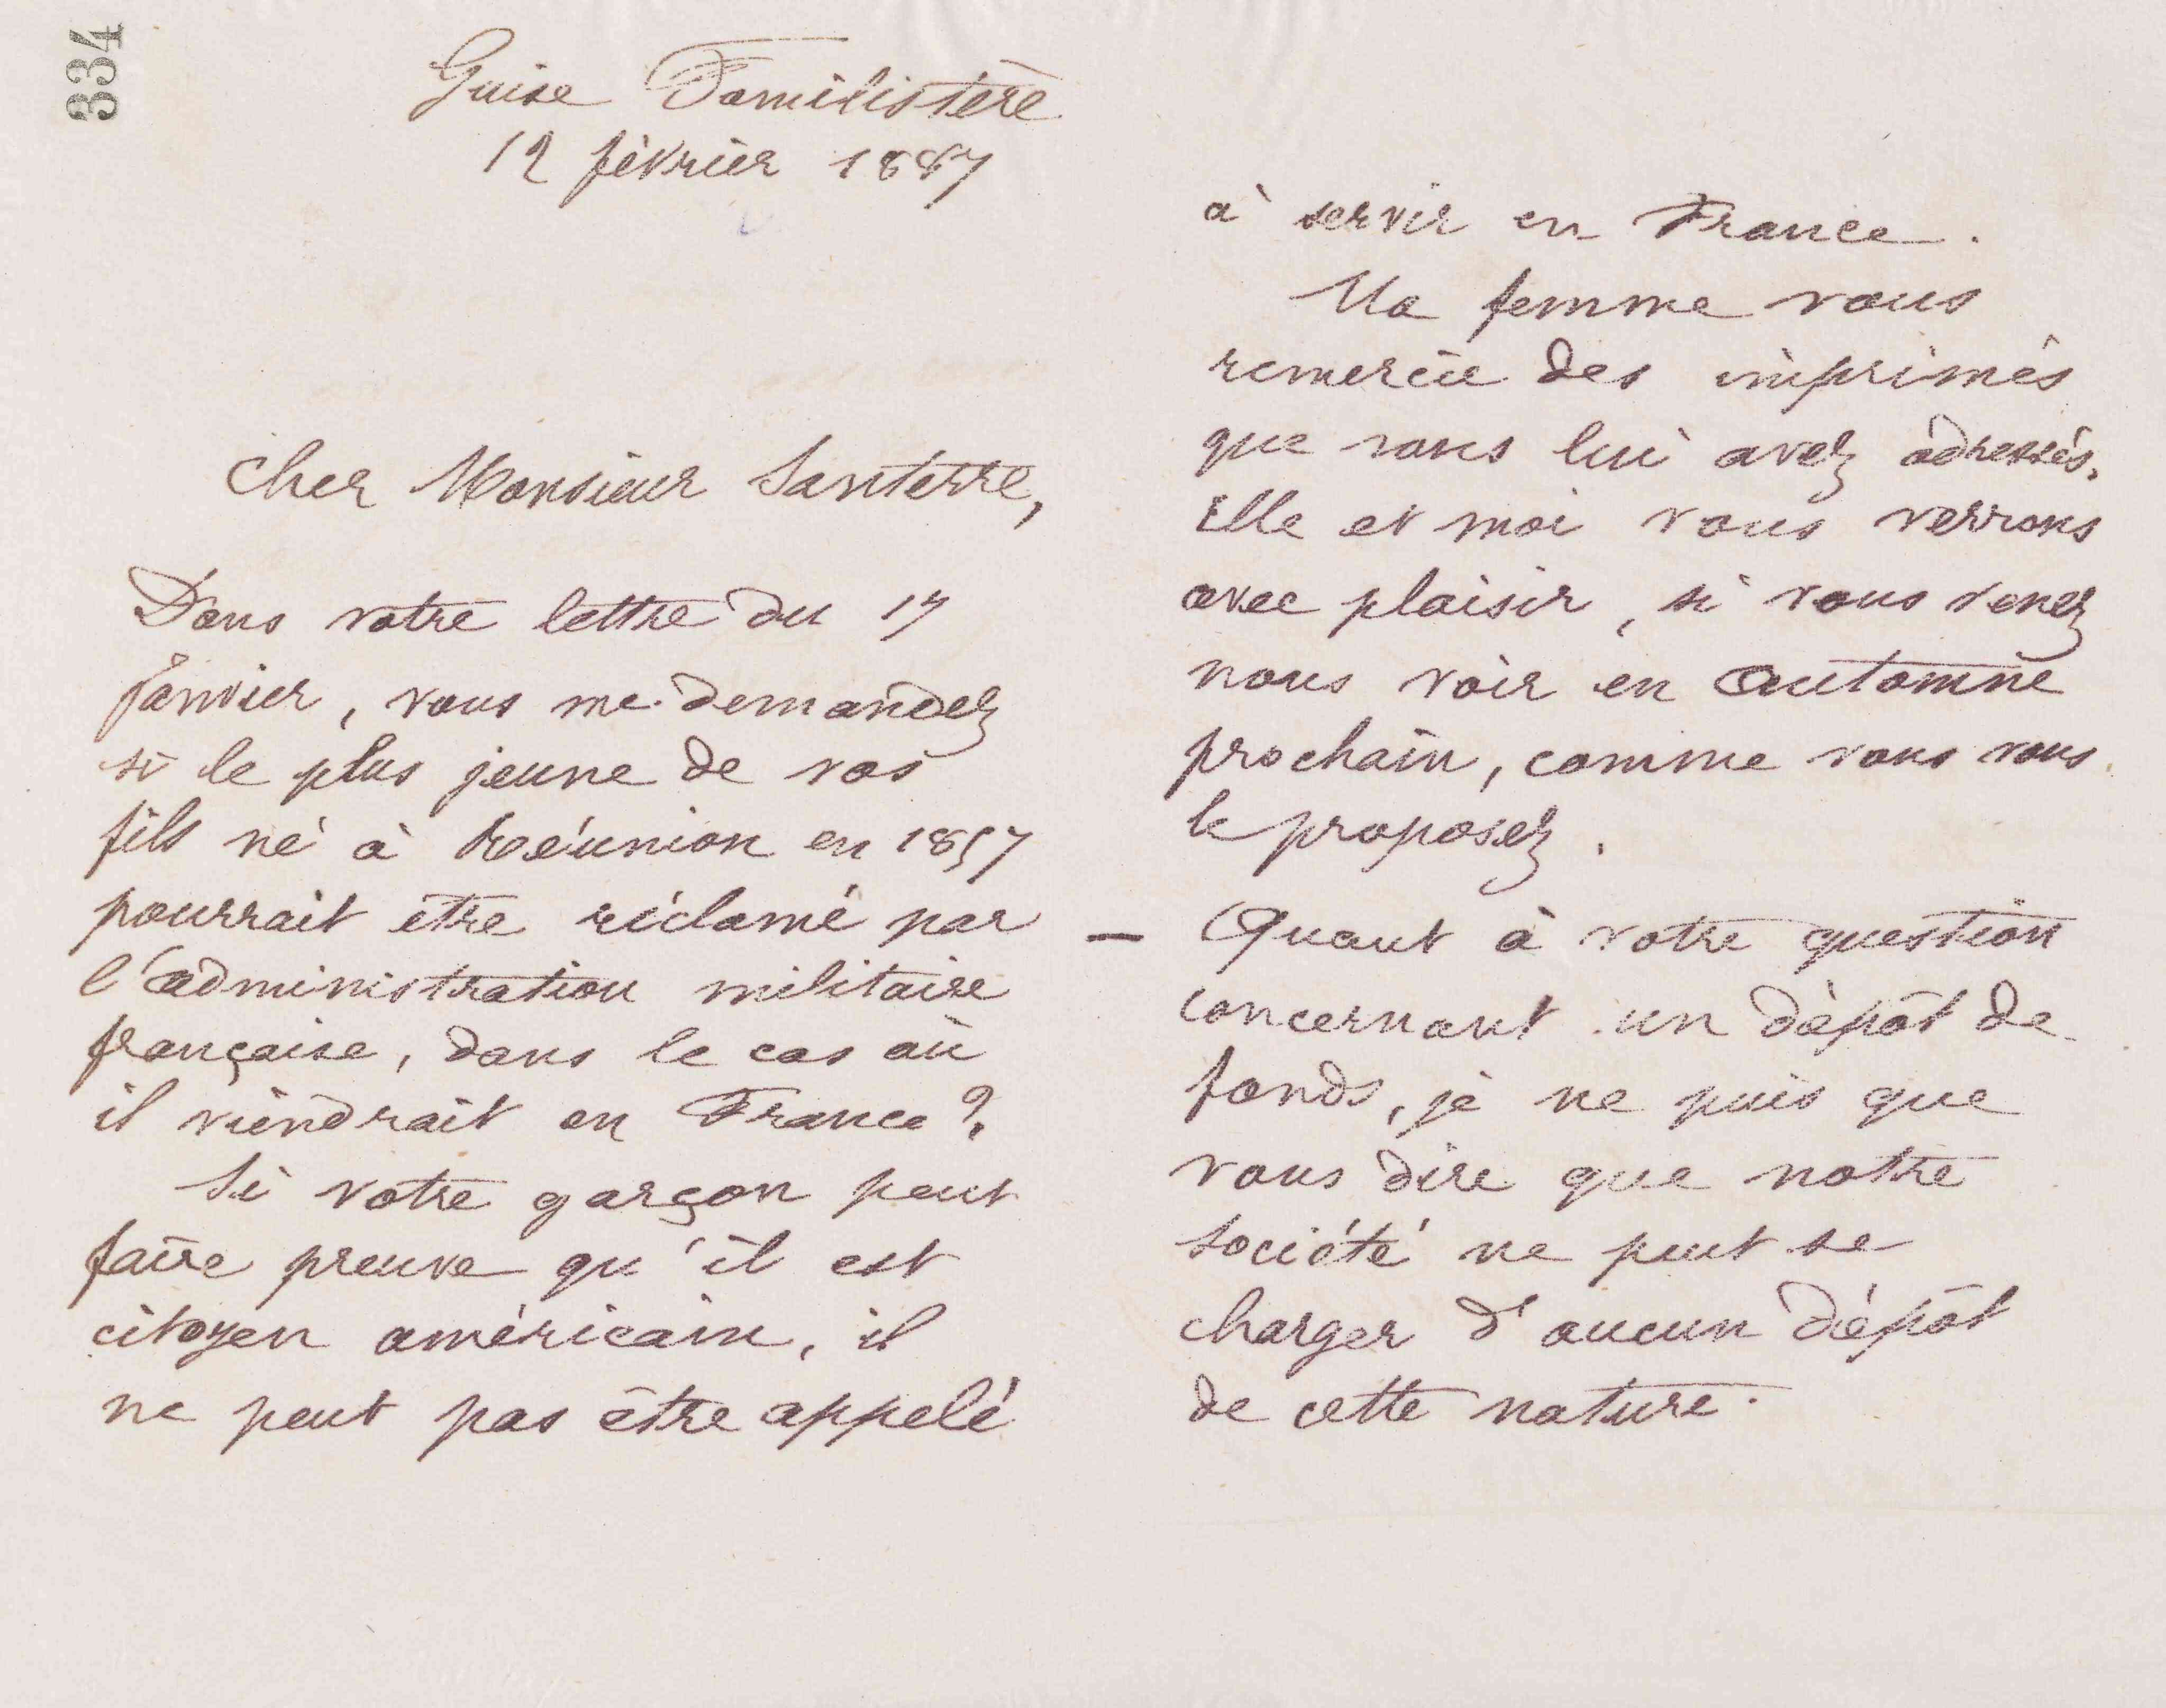 334
Guise Familistère
12 février 1887
Cher Monsieur Santerre,
Dans votre lettre du 17
Janvier, vous me demandez
si le plus jeune de vos
fils né à Réunion en 1857
pourrait être réclamé par
l'administration militaire
française, dans le cas où
il viendrait en France?
Si votre garçon peut
faire preuve qu'il est
citoyen américain, il
ne peut pas être appelé
à servir en France.
Ma femme vous
remercie des imprimés
que vous lui avez adressés.
Elle et moi vous verrons
avec plaisir, si vous venez
nous voir en Automne
prochain, comme vous vous
le proposez.
— Quant à votre question
concernant un dépôt de
fonds, je ne puis que
vous dire que notre
Société ne peut se
charger d'aucun dépôt
de cette nature.